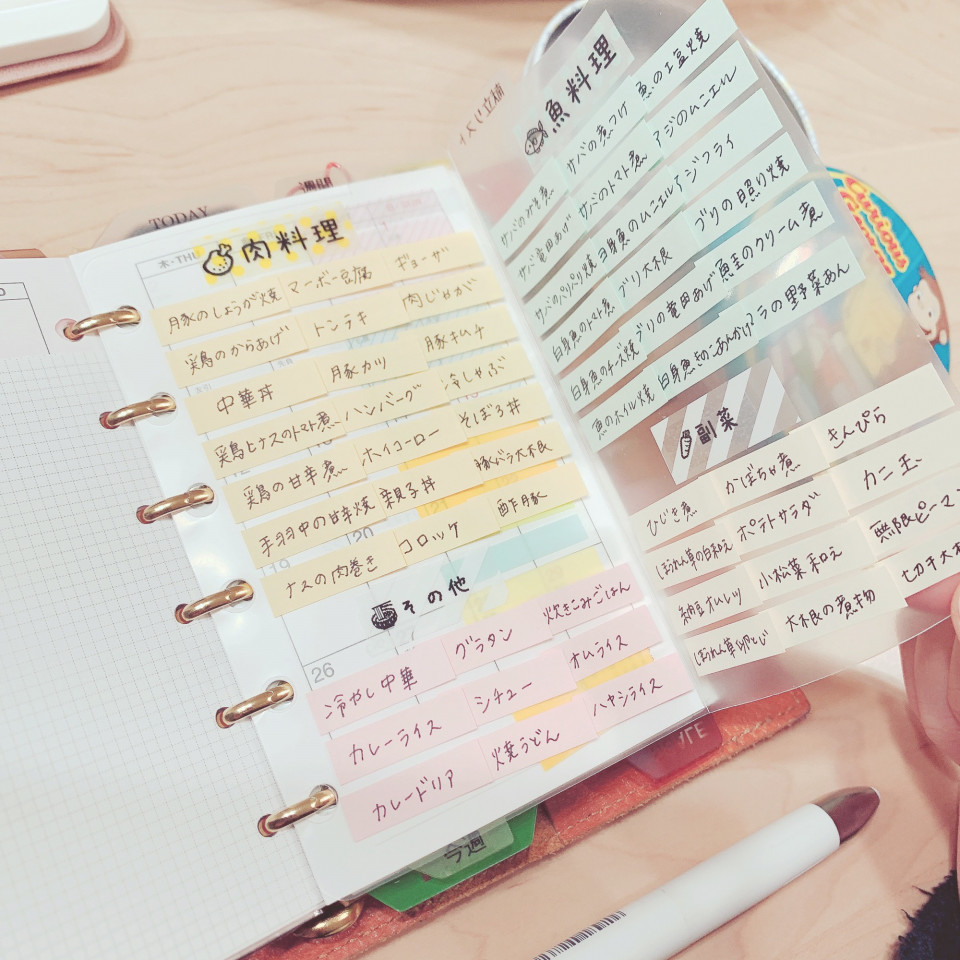 TODAY
週間
木・THU
肉料理
豚のしょうが焼 マーボー豆腐 ギョーザ
鶏のからあげ トンテキ 肉じゃが
中華丼 豚カツ 豚キムチ
鶏ムネのトマト煮 ハンバーグ 冷しゃぶ
鶏の甘辛煮 ホイコーロー そぼろ丼
手羽中の甘辛焼 親子丼 豚バラ大根
ナスの肉巻き コロッケ 酢豚
19
20
21
26
その他
冷やし中華 グラタン 炊きこみごはん
カレーライス シチュー オムライス
カレードリア 焼うどん ハヤシライス
魚料理
サバのみそ煮 サバの煮つけ 魚の塩焼
サバ竜田あげ サバのトマト煮 アジのムニエル
サバのパリパリ焼 白身魚のムニエル アジフライ
白身魚のトマト煮 ブリ大根 ブリの照り焼
白身魚のチーズ焼 ブリの竜田あげ 魚のクリーム煮
魚のホイル焼 白身魚きのこあんかけ タラの野菜あん
副菜
ひじき煮 かぼちゃ煮 きんぴら
ほうれん草の白和え ポテトサラダ カニ玉
納豆オムレツ 小松菜和え 無限ピーマン
ほうれん草卵とじ 大根の煮物
今週
Curious
George